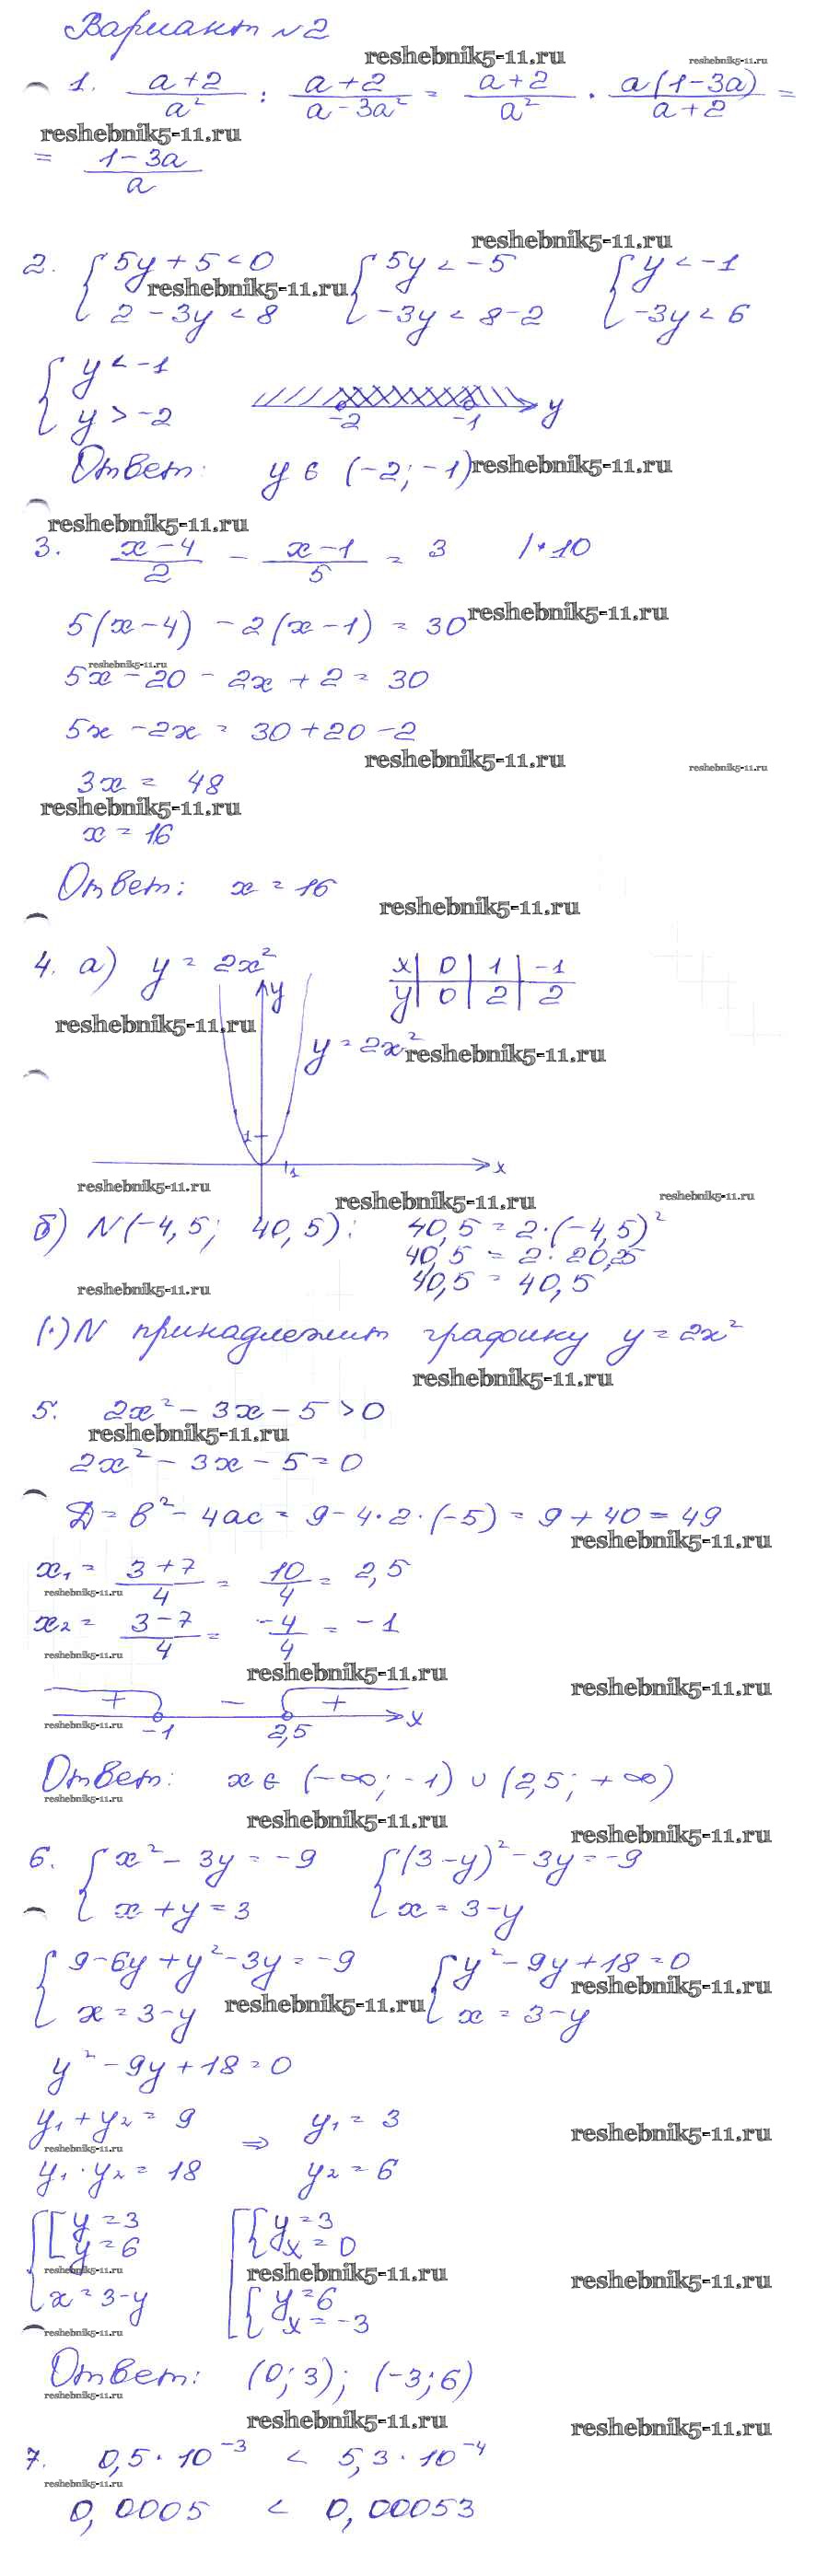 Вариант №2
reshebnik5-11.ru
reshebnik5-11.ru
1. (a+2)/a² : (a+2)/(a-3a²) = (a+2)/a² · a(1-3a)/(a+2) =
reshebnik5-11.ru
= (1-3a)/a
reshebnik5-11.ru
2. { 5y+5<0 { 5y<-5 { y<-1
reshebnik5-11.ru
2-3y<8 -3y<8-2 -3y<6
{ y<-1
y>-2
-2 -1 y
Ответ: y ∈ (-2; -1)
reshebnik5-11.ru
reshebnik5-11.ru
3. (x-4)/2 - (x-1)/5 = 3 |·10
reshebnik5-11.ru
5(x-4) - 2(x-1) = 30
reshebnik5-11.ru
5x-20-2x+2=30
5x-2x=30+20-2
reshebnik5-11.ru
reshebnik5-11.ru
3x = 48
reshebnik5-11.ru
x = 16
Ответ: x = 16
reshebnik5-11.ru
4. а) y = 2x²
x 0 1 -1
y 0 2 2
y
reshebnik5-11.ru
y=2x²
reshebnik5-11.ru
1
1
x
reshebnik5-11.ru
reshebnik5-11.ru
reshebnik5-11.ru
б) N(-4,5; 40,5): 40,5=2·(-4,5)²
40,5 = 2·20,25
40,5 = 40,5
reshebnik5-11.ru
(·)N принадлежит графику y=2x²
reshebnik5-11.ru
5. 2x²-3x-5>0
reshebnik5-11.ru
2x²-3x-5=0
D=b²-4ac=9-4·2·(-5)=9+40=49
reshebnik5-11.ru
x₁ = (3+7)/4 = 10/4 = 2,5
reshebnik5-11.ru
x₂ = (3-7)/4 = -4/4 = -1
reshebnik5-11.ru
reshebnik5-11.ru
reshebnik5-11.ru
+ - +
reshebnik5-11.ru
-1 2,5 x
Ответ: x ∈ (-∞; -1) ∪ (2,5; +∞)
reshebnik5-11.ru
reshebnik5-11.ru
reshebnik5-11.ru
6. { x²-3y=-9 { (3-y)²-3y=-9
x+y=3 x=3-y
{ 9-6y+y²-3y=-9 { y²-9y+18=0
reshebnik5-11.ru
reshebnik5-11.ru
x=3-y x=3-y
y²-9y+18=0
y₁+y₂=9 ⇒ y₁=3
reshebnik5-11.ru
reshebnik5-11.ru
y₁·y₂=18 y₂=6
{ [ y=3 [ { y=3
y=6 x=0
reshebnik5-11.ru
reshebnik5-11.ru
reshebnik5-11.ru
x=3-y { y=6
x=-3
reshebnik5-11.ru
Ответ: (0;3); (-3;6)
reshebnik5-11.ru
reshebnik5-11.ru
reshebnik5-11.ru
7. 0,5·10⁻³ < 5,3·10⁻⁴
reshebnik5-11.ru
0,0005 < 0,00053